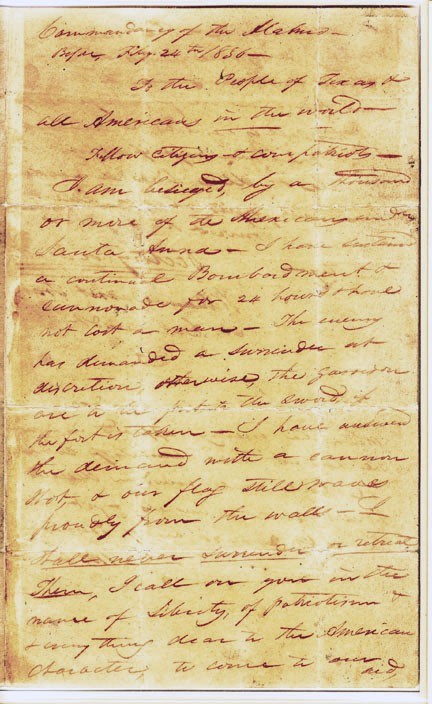 Commandancy of the Alamo—
Bejar, Feby. 24th 1836—
To the People of Texas &
all Americans in the world—
Fellow citizens & compatriots—
I am besieged, by a thousand
or more of the Mexicans under
Santa Anna— I have sustained
a continual Bombardment &
cannonade for 24 hours & have
not lost a man— The enemy
has demanded a surrender at
discretion, otherwise, the garrison
are to be put to the sword, if
the fort is taken— I have answered
the demand with a cannon
shot, & our flag still waves
proudly from the walls— I
shall never surrender or retreat
Then, I call on you in the
name of Liberty, of patriotism &
& everything dear to the American
character, to come to our
aid,